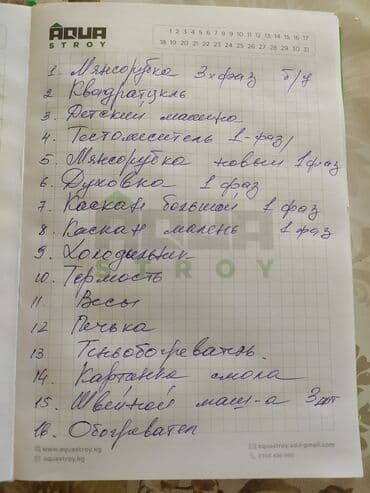 AQUA
STROY
1 2 3 4 5 6 7 8 9 10 11 12 13 14 15 16 17
18 19 20 21 22 23 24 25 26 27 28 29 30 31
1. Мянсорубка 3х фаз б/у
2 Квадратцикль
3. Детский машина
4. Тостомиситель 1-фаз/
5. Мянсорубка новый 1 фаз
6. Духовка 1 фаз
7. Каскан большой 1 фаз
8. Каскан малень 1 фаз
9. Холодильник
10. Термость
11 Весы
12 Печька
13
14. Картанка смола
15. Швейной маш-а 3 шт
16. Обогревател
AQUA
STROY
www.aquastroy.kg
aquastroy.kg